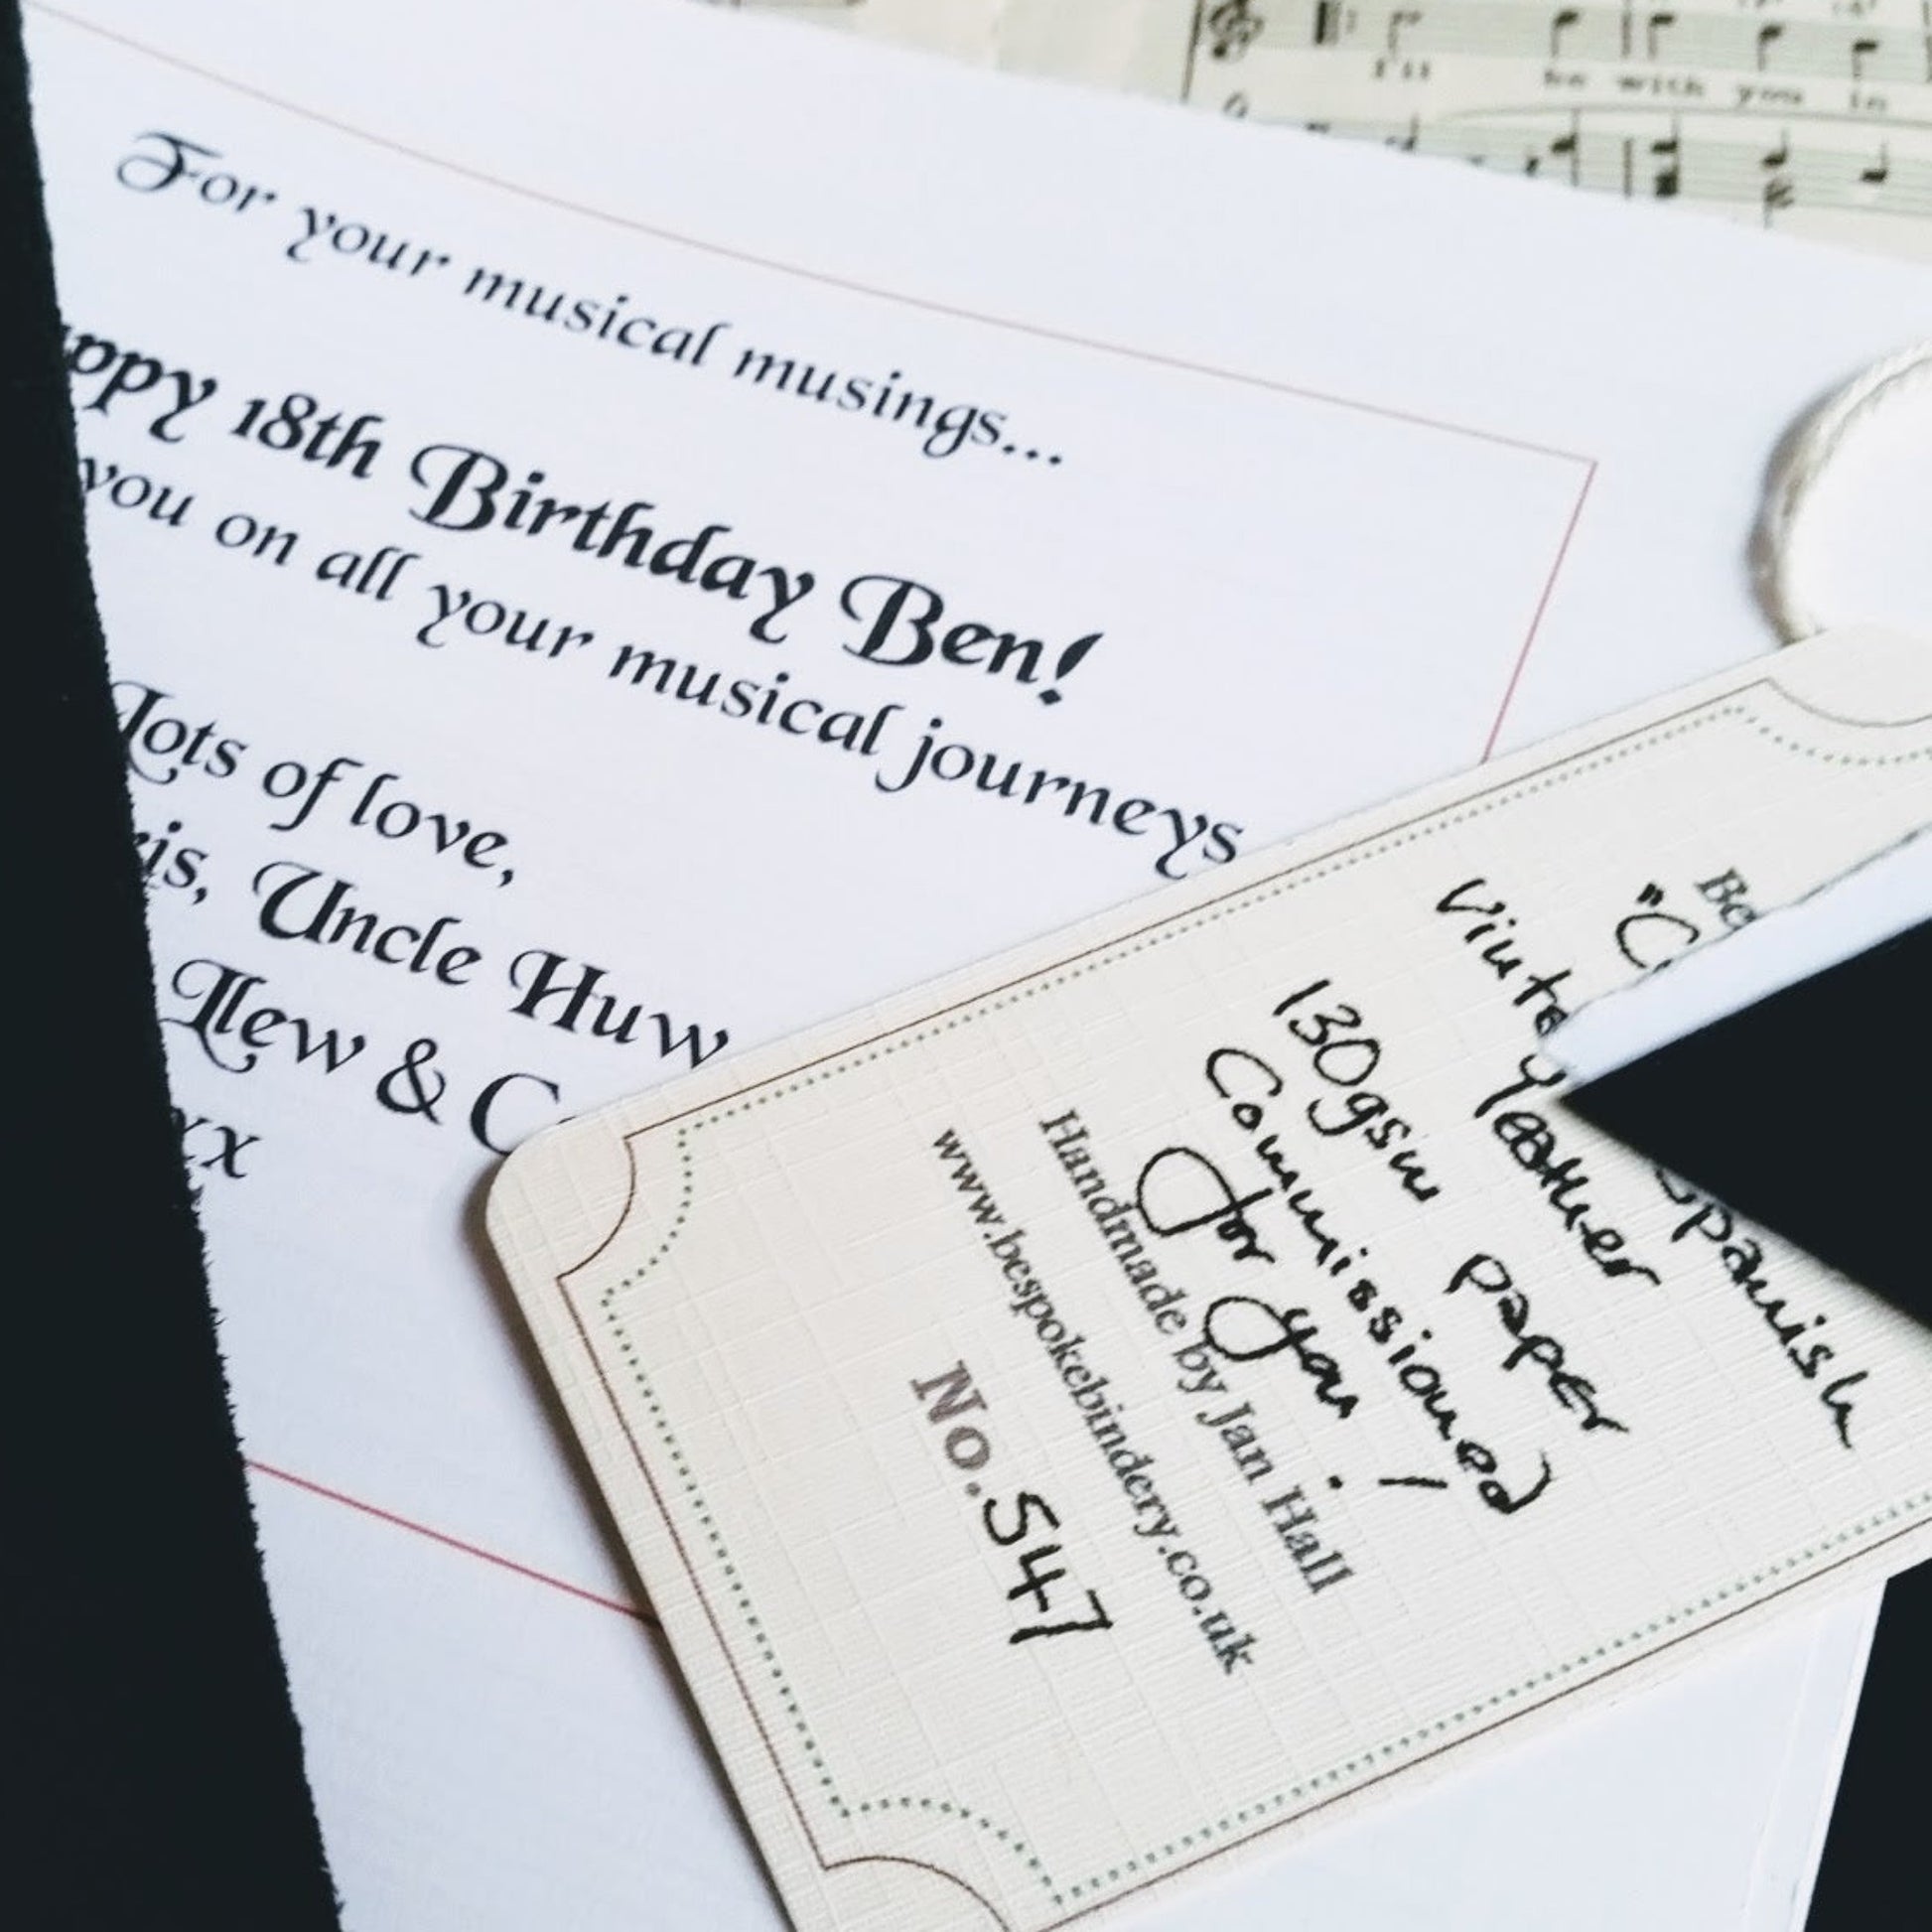 I'll be with you in
For your musical musings...
ppy 18th Birthday Ben!
you on all your musical journeys
Lots of love,
ris, Uncle Huw
Llew & C
xx
Be
"C
Spanish
Vinta
leather
130gsm paper
Commissioned
for you!
Handmade by Jan Hall
www.bespokebindery.co.uk
No. 547